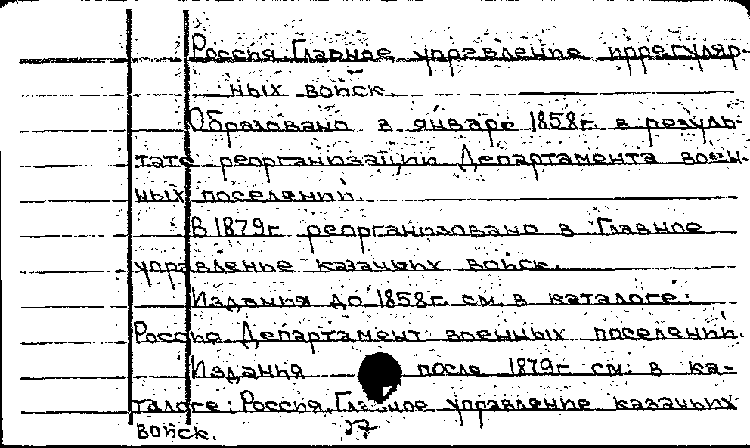 Россия. Главное управление иррегуляр-
ных войск.
Образовано в январе 1858г. в резуль-
тате реорганизации Департамента воен-
ных поселений.
В 1879г. реорганизовано в Главное
управление казачьих войск.
Издания до 1858г. см. в каталоге:
Россия. Департамент военных поселений.
Издания после 1879г. см. в ка-
талоге: Россия. Главное управление казачьих
войск. 27